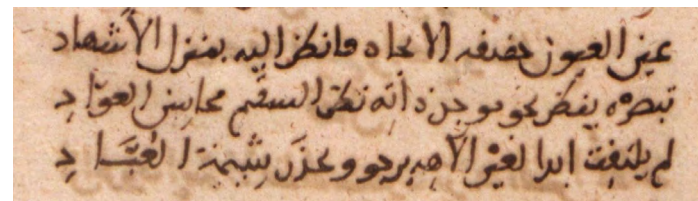 عين العيون حقيقه الايجاد فانظر اليه بمنزل الأشهاد
تبصره ينظر نحو موجد ذاته نظر السقيم محاسن العواد
لم يلتفت ابدا لغير الاهه يرجو ويحذر شيمة العبَّاد